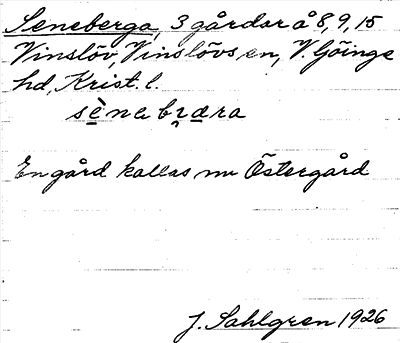 Seneberga, 3 gårdar å 8, 9, 15
Vinslöv, Vinslövs sn, V. Göinge
hd, Krist. l.
sènabɿara
En gård kallas nu Östergård
J. Sahlgren 1926